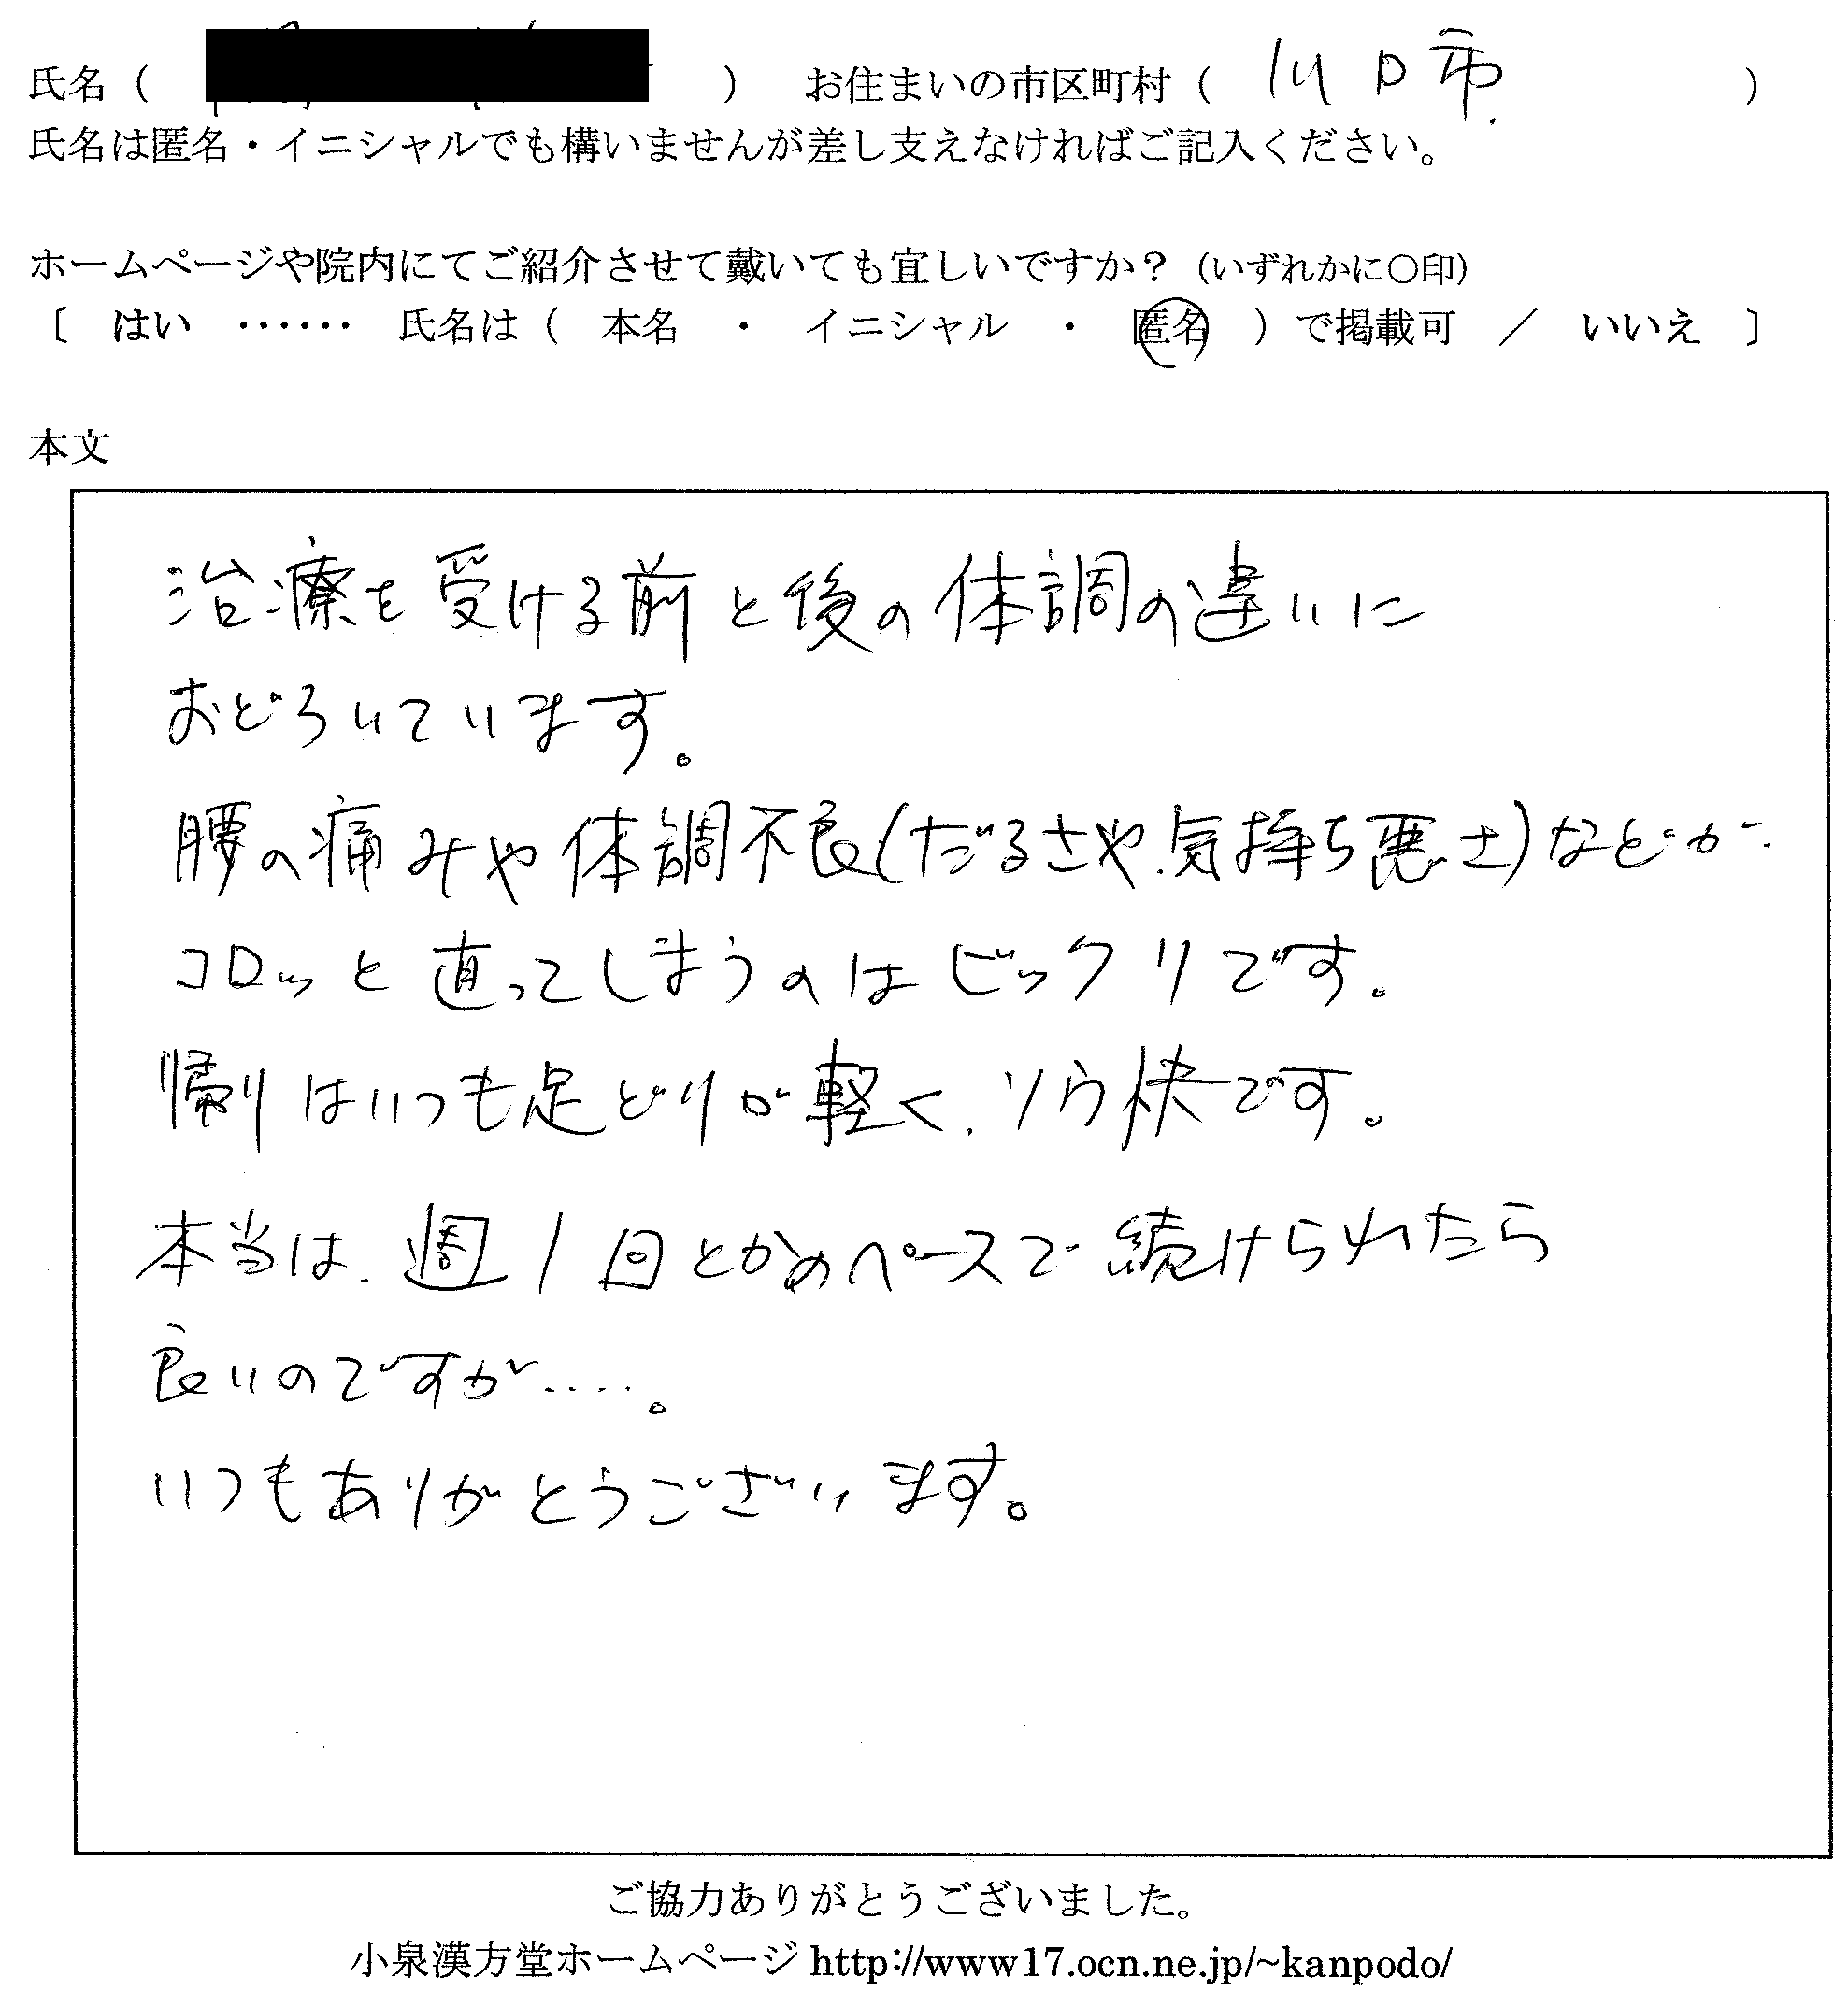 氏名（　　　）　お住まいの市区町村（　川口市　）
氏名は匿名・イニシャルでも構いませんが差し支えなければご記入ください。
ホームページや院内にてご紹介させて戴いても宜しいですか？（いずれかに〇印）
〔　はい　……　氏名は（　本名　・　イニシャル　・　匿名　）で掲載可　／　いいえ　〕
本文
治療を受ける前と後の体調の違いに
おどろいています。
腰の痛みや体調不良（だるさや、気持ち悪さ）などが
コロッと直ってしまうのはビックリです。
帰りはいつも足どりが軽く、ソウ快です。
本当は、週1回とかのペースで続けられたら
良いのですが…‥。
いつもありがとうございます。
ご協力ありがとうございました。
小泉漢方堂ホームページ http://www17.ocn.ne.jp/~kanpodo/